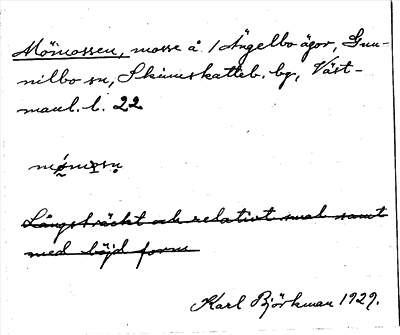 Mömossen, mosse å /Ängelbo ägor, Gun-
nilbo sn, Skinnskatteb. bg, Väst-
manl. l. 22
mǿmosn̥
Långsträckt och relativt smal samt
med böjd form
Karl Björkman 1929.